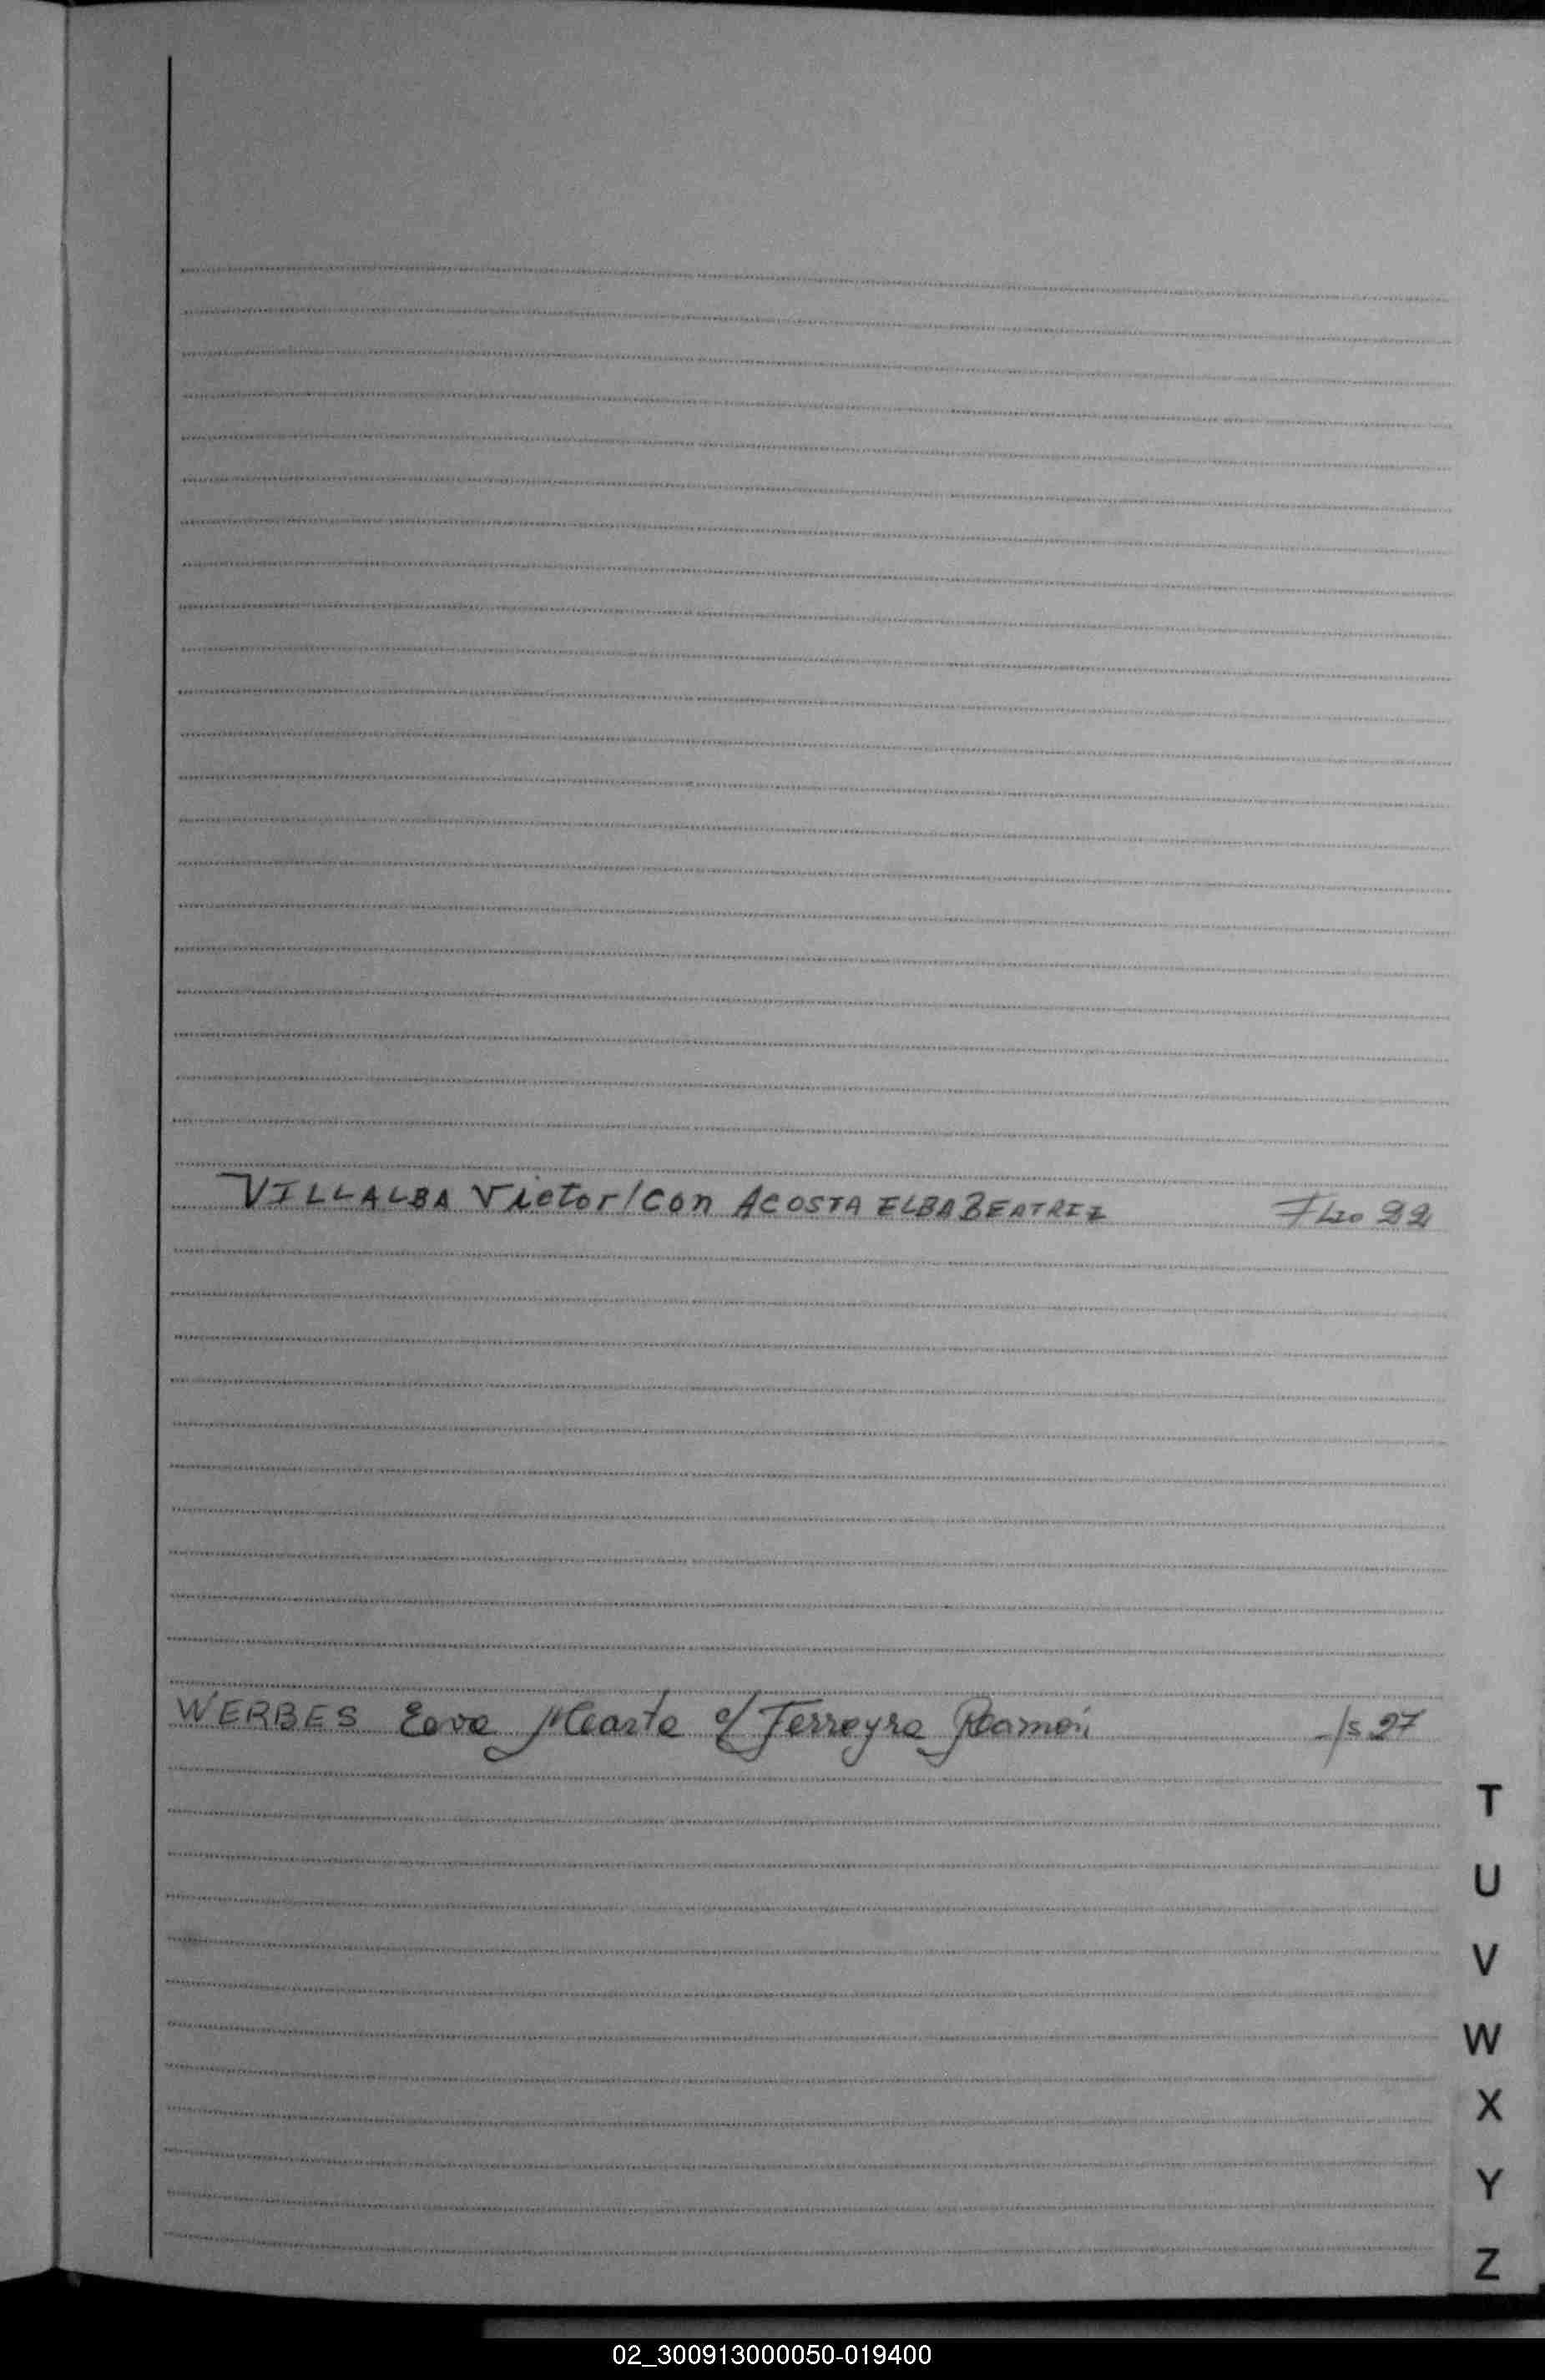 VILLALBA Victor/con ACOSTA ELBA BEATRIZ Flio 22
WERBES Marta c/ Ferreyra Ramón fs 27
T
U
V
W
X
Y
Z
02_300913000050-019400